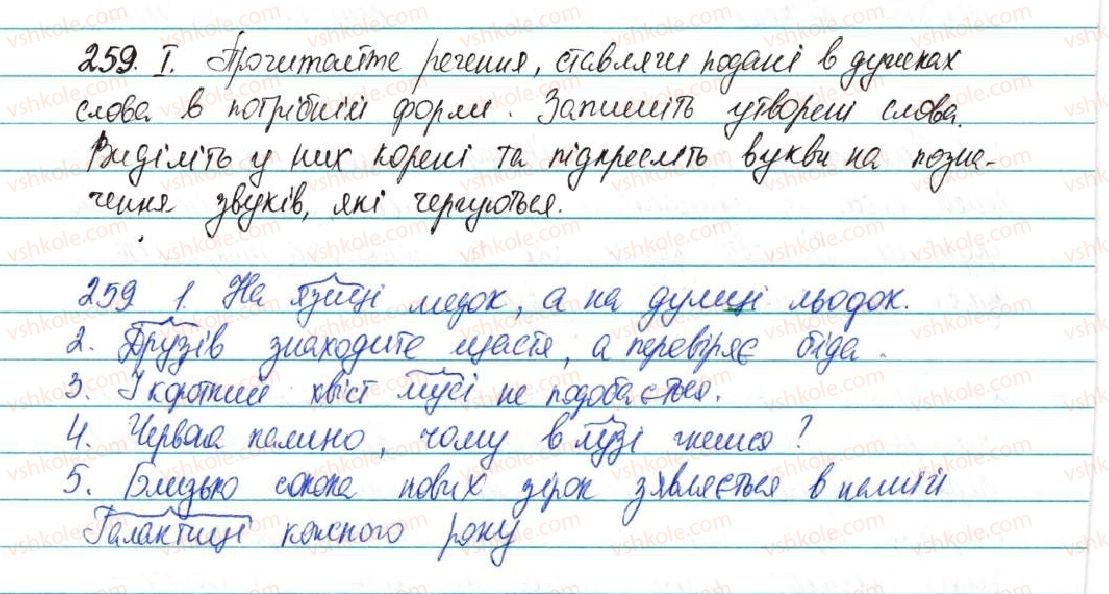 259. I. Прочитайте речення, ставлячи подані в дужках
слова в потрібній формі. Запишіть утворені слова.
Виділіть у них корені та підкресліть букви на позна-
чення звуків, які чергуються.
259 1. На язиці медок, а на думці льодок.
2. Друзів знаходите щастя, а перевіряє біда.
3. І короткий хвіст мусі не подобається.
4. Червона калино, чому в лузі гнешся?
5. Близько сорока нових зірок зявляється в нашій
Галактиці кожного року